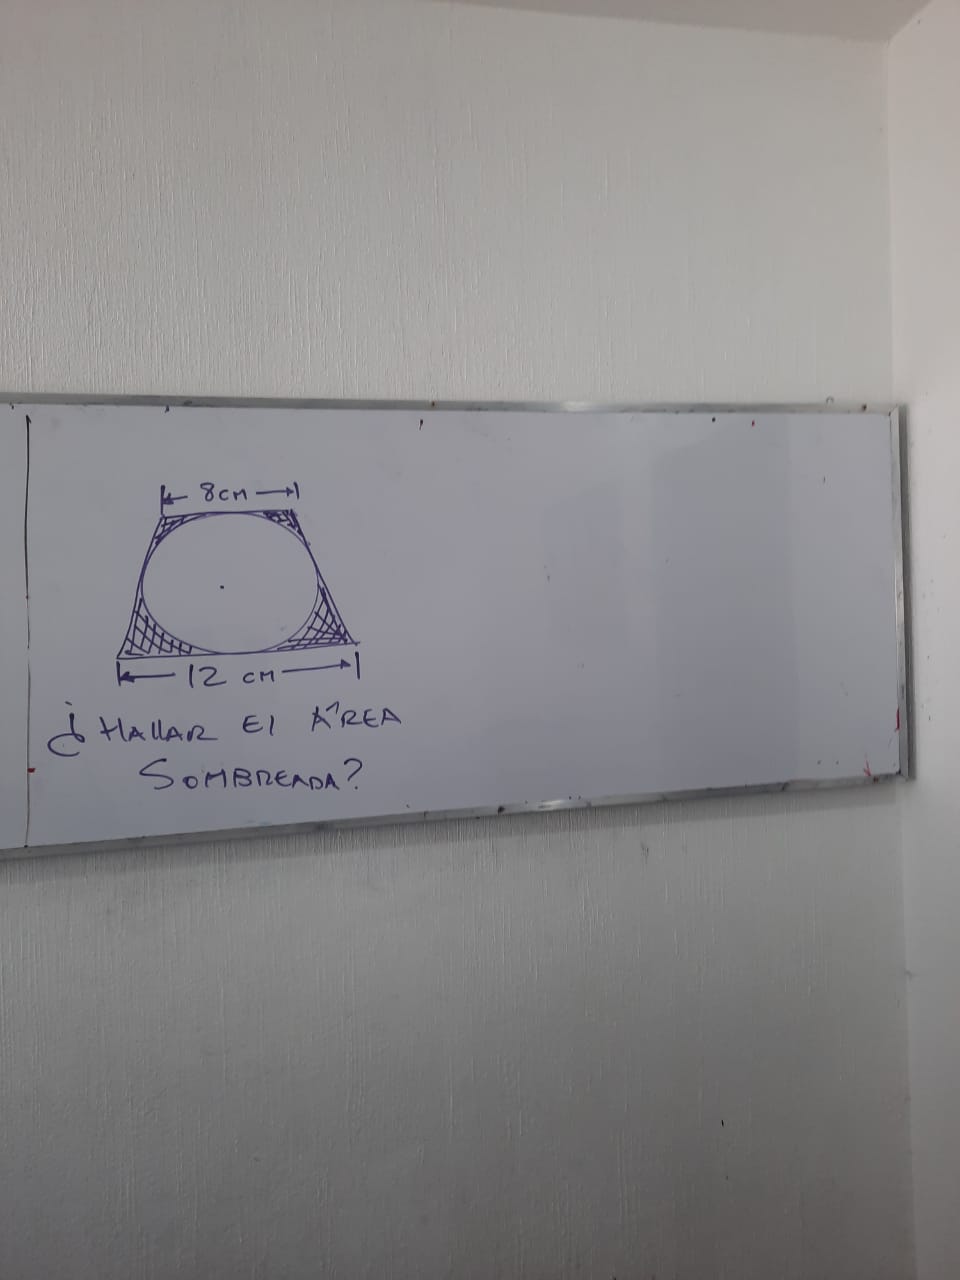 8cm
12 cm
¿HALLAR El ÁREA
SOMBREADA?